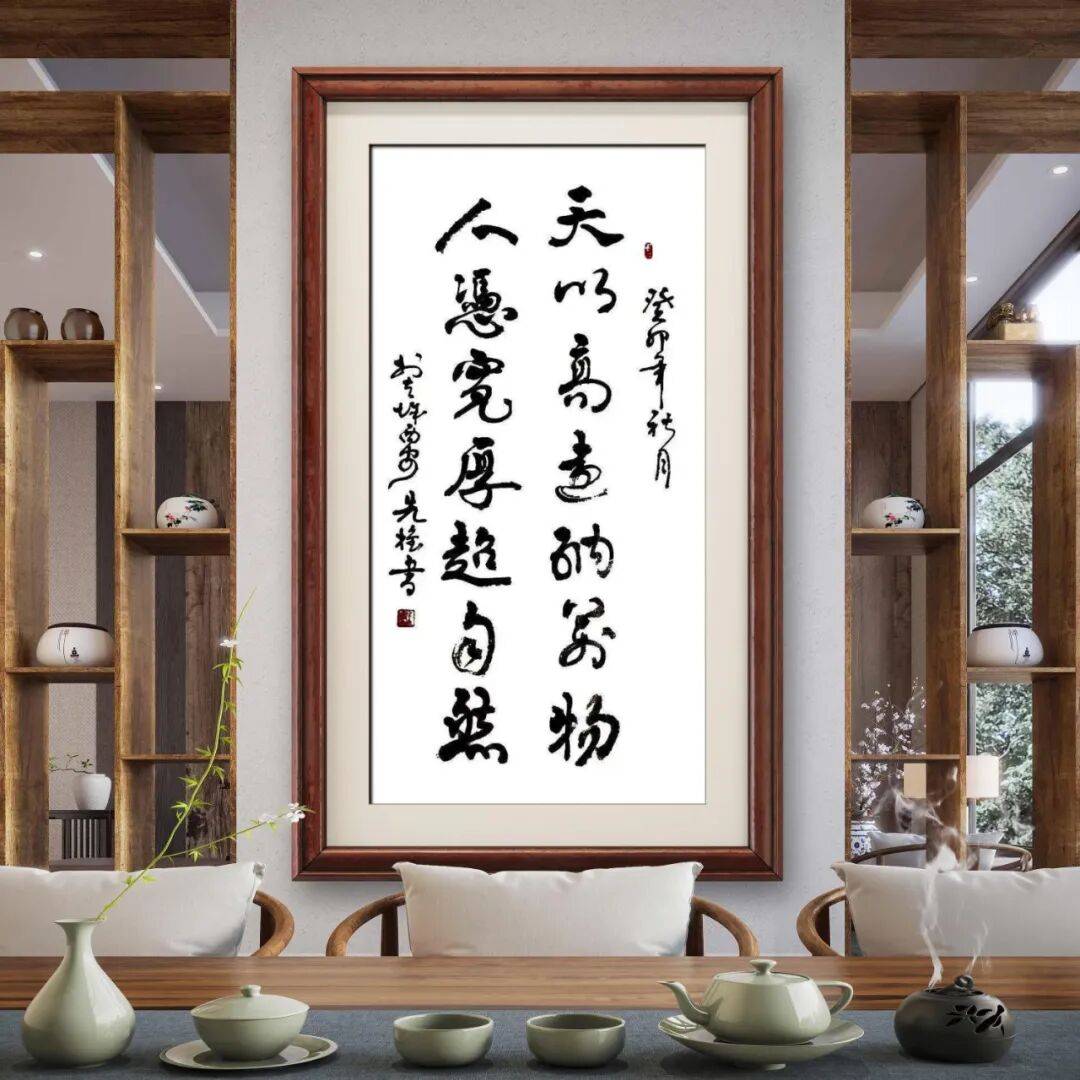 癸卯年秋月
天以高遠納萬物
人憑寬厚超自然
於古城西安 先書